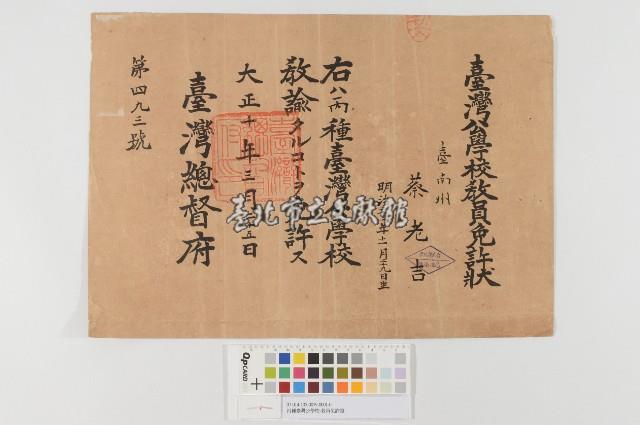 臺灣公學校教員免許狀
臺南州
蔡老吉
明治年十一月十九日生
右ハ丙種臺灣公學校
教諭タルコトヲ許ス
大正十年三月五日
臺灣總督府
第四九三號
臺北市立文獻館
QPCARD